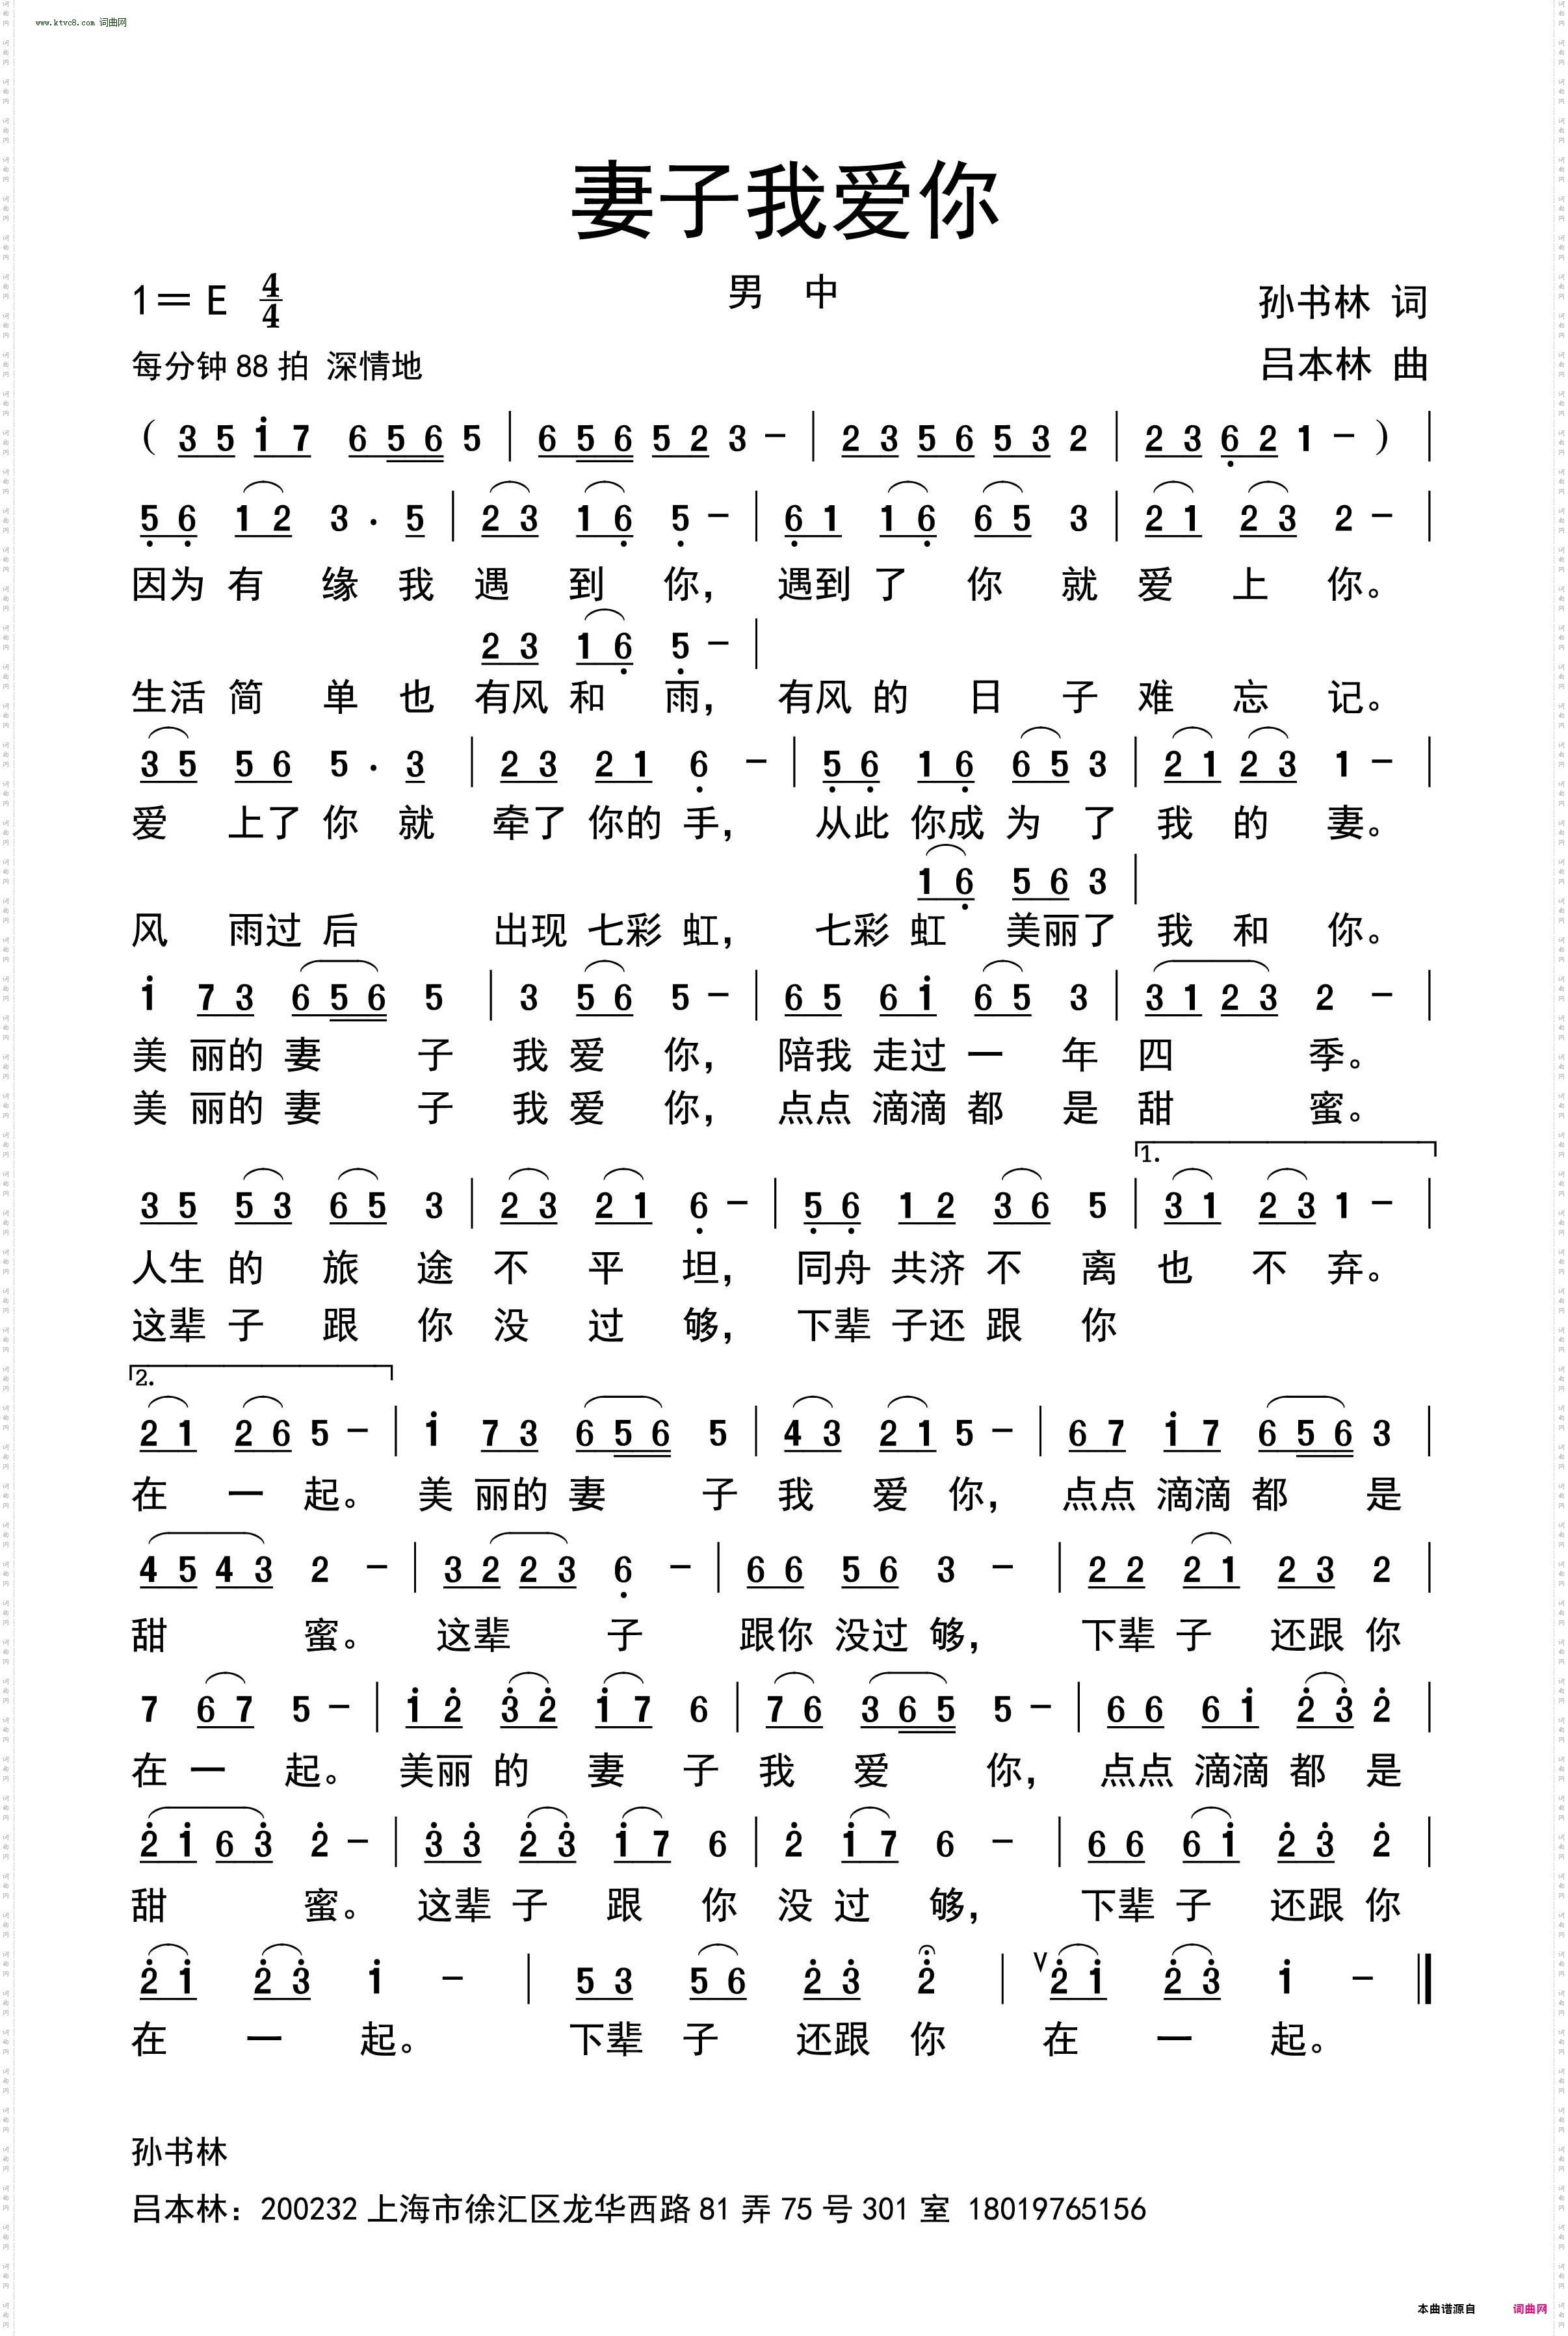 www.ktvc8.com 词曲网
妻子我爱你
男 中
1＝ E 4/4
孙书林 词
每分钟 88 拍 深情地
吕本林 曲
( 3 5 1 7 6 5 6 5 | 6 5 6 5 2 3 － | 2 3 5 6 5 3 2 | 2 3 6 2 1 － ) |
5 6 1 2 3 · 5 | 2 3 1 6 5 － | 6 1 1 6 6 5 3 | 2 1 2 3 2 － |
因为 有 缘 我 遇 到 你， 遇到 了 你 就 爱 上 你。
2 3 1 6 5 － |
生活 简 单 也 有风 和 雨， 有风 的 日 子 难 忘 记。
3 5 5 6 5 · 3 | 2 3 2 1 6 － | 5 6 1 6 6 5 3 | 2 1 2 3 1 － |
爱 上了 你 就 牵了 你的 手， 从此 你成 为 了 我 的 妻。
1 6 5 6 3 |
风 雨过 后 出现 七彩 虹， 七彩 虹 美丽了 我 和 你。
1 7 3 6 5 6 5 | 3 5 6 5 － | 6 5 6 1 6 5 3 | 3 1 2 3 2 － |
美 丽的 妻 子 我 爱 你， 陪我 走过 一 年 四 季。
美 丽的 妻 子 我 爱 你， 点点 滴滴 都 是 甜 蜜。
1.
3 5 5 3 6 5 3 | 2 3 2 1 6 － | 5 6 1 2 3 6 5 | 3 1 2 3 1 － |
人生 的 旅 途 不 平 坦， 同舟 共济 不 离 也 不 弃。
这辈 子 跟 你 没 过 够， 下辈 子还 跟 你
2.
2 1 2 6 5 － | 1 7 3 6 5 6 5 | 4 3 2 1 5 － | 6 7 1 7 6 5 6 3 |
在 一 起。 美 丽的 妻 子 我 爱 你， 点点 滴滴 都 是
4 5 4 3 2 － | 3 2 2 3 6 － | 6 6 5 6 3 － | 2 2 2 1 2 3 2 |
甜 蜜。 这辈 子 跟你 没过 够， 下辈 子 还跟 你
7 6 7 5 － | 1 2 3 2 1 7 6 | 7 6 3 6 5 5 － | 6 6 6 1 2 3 2 |
在 一 起。 美丽 的 妻 子 我 爱 你， 点点 滴滴 都 是
2 1 6 3 2 － | 3 3 2 3 1 7 6 | 2 1 7 6 － | 6 6 6 1 2 3 2 |
甜 蜜。 这辈 子 跟 你 没 过 够， 下辈 子 还跟 你
2 1 2 3 1 － | 5 3 5 6 2 3 2 | 2 1 2 3 1 － ‖
在 一 起。 下辈 子 还跟 你 在 一 起。
孙书林
吕本林：200232 上海市徐汇区龙华西路 81 弄 75 号 301 室 18019765156
本曲谱源自 词曲网